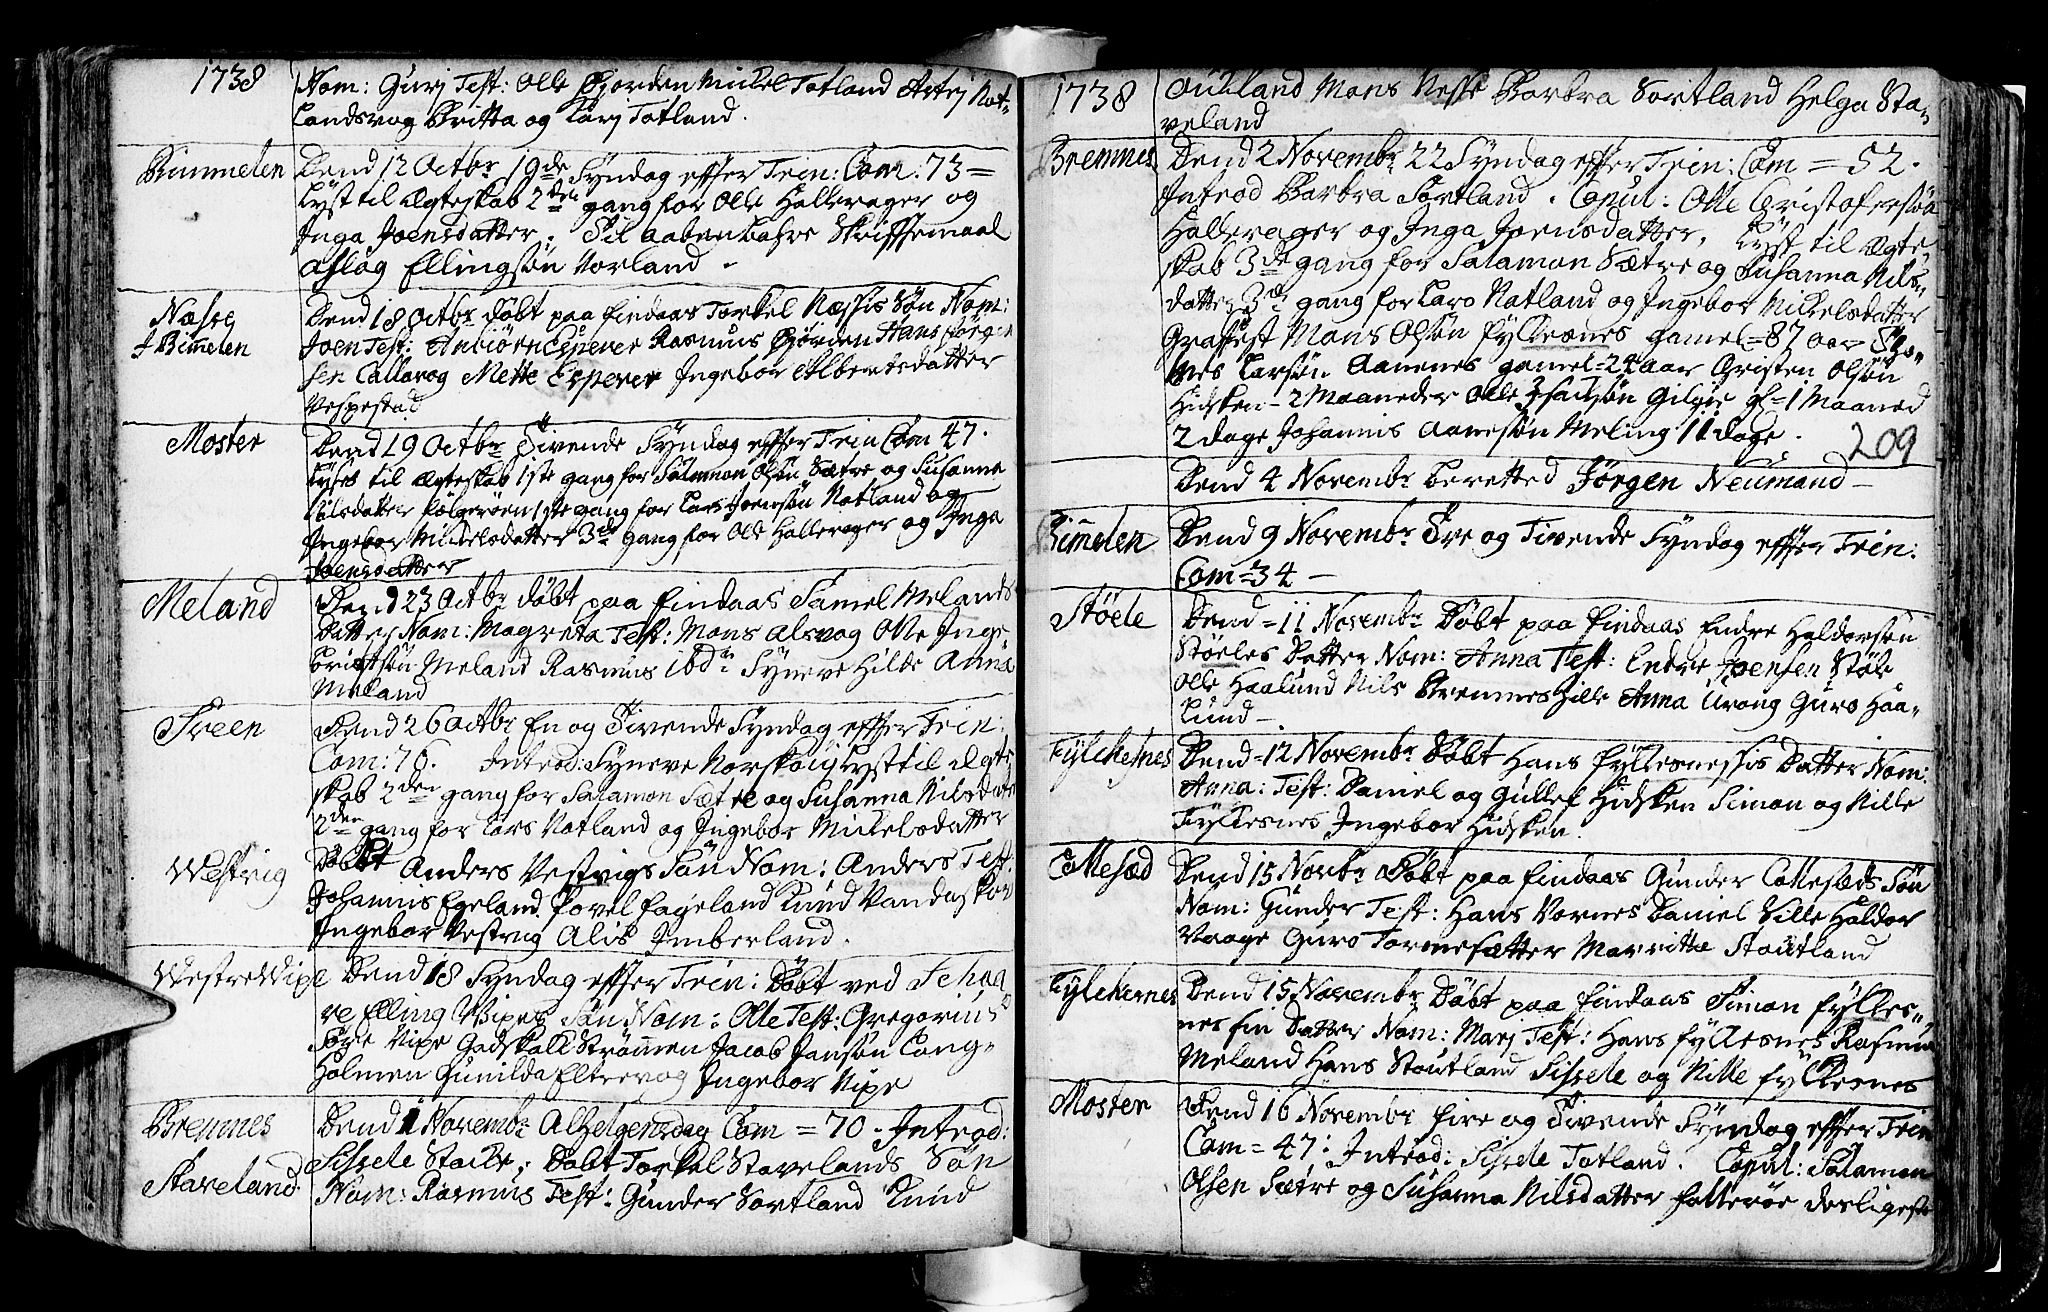 1738
Nom: Gurj Test: Olle Gjorden Mickel Totland Astrj Nat-
Landsvog Britta og Karj Totland.
Bimmelen
Dend 12 Octbr 19de Syndag effter Trin: Com: 73=
Lyst til Ægteskab 2den gang for Olle Hallerager og
Inga Joensdatter. Til aabenbahre Skriftemaal
Aslog Ellingsön Vorland -
Næsse
i Bimelen
Dend 18 Octbr döbt paa Findaas Torkel Næssis Sön Nom:
Joen Test: Anbiörn Espever Rasmus Gjörden Hans Jörgen
sen Callavog Mette Espever Ingebor Albertsdatter
Vespestad
Moster
Dend 19 Octbr Tivende Syndag effter Trin Com 47.
Lyses til Ægteskab 1ste gang for Salamon Olsön Sætre og Susanna
Nilsdatter 1ste gang for Lars Joensön Natland og
Ingebor Mickelsdatter 3de gang for Olle Hallerager og Inga
Joensdatter
Meland
Dend 23 Octbr döbt paa Findaas Samel Melands
Datter Nom: Magreta Test: Mons Alsvog Olle Inge
britsön Meland Rasmus ibdm Syneve Hilde Anna
Meland
Sveen
Dend 26 Octbr En og Tivende Syndag effter Trin:
Com: 76. Introd: Syneve Norskoug Lyst til Ægte
skab 2den gang for Salamon Sætre og Susanna Nilsdatter
2den gang for Lars Natland og Ingebor Mickelsdatter
Westvig
Döbt Anders Vestvigs Sön Nom: Anders Test:
Johannis Egeland Povel Fageland Knud Vandaskor
Ingebor Vestvig Alis Imberland.
Westre Wixe
Dend 18 Syndag effter Trin: Döbt ved
Elling Vixes Sön Nom: Olle Test: Gregorius
Vixe Godskalk Strömen Jacob Jansön Lang-
Holmen Gunilda Eltrevog Ingebor Vixe
Bremnes
Dend 1 Novembr Alhelgensdag Com = 70. Introd:
Staveland
Sissele Stacke. Döbt Torkel Stavelands Sön
Nom: Rasmus Test: Gunder Vortland Knud
1738
Aukland Mons Nesse Barbra Vortland Helga Sta-
veland
Bremnes
Dend 2 Novembr 22 Syndag effter Trin: Com = 52.
Introd Barbra Sortland. Copul: Olle Cristofersön
Hallerager og Inga Joensdatter. Lyst til Ægte-
skab 3de gang for Salamon Sætre og Susanna Nils-
datter 3de gang for Lars Natland og Ingebor Mickelsdatter
Grafest Mons Olsön Fylkesnes gamel = 87 aar
Larsön Aanenes gamel = 24 aar Cristen Olsön
Hidsken - 2 Maaneder Olle Isacksön Gilgie gl = 1 Maaned
2 dage Johannis Aamesön Meling 11 dage.
209
Dend 4 Novembr beretted Jörgen Neumand -
Bimelen
Dend 9 Novembr Tre og Tivende Syndag effter Trin:
Com = 34 -
Stöele
Dend = 11 Novembr Döbt paa Findaas Endre Haldorsön
Stöeles Datter Nom: Anna Test: Endre Joensen Stöle
Olle Haalund Nils Bremnes Zille Anna Urang Guro Haa-
Lund -
Fylchesnes
Dend = 12 Novembr Döbt Hans Fyllesnessis Datter Nom:
Anna: Test: Daniel og Gullef Hidsken Simon og Nille
Fylkesnes Ingebor Hidsken.
Collesæd
Dend 15 Novbr Döbt paa Findaas Gunder Collesæds Sön
Nom: Gunder Test: Hans Vornes Daniel Ville Haldor
Vaage Guro Tornesætter Marritha Stoutland
Fylchesnes
Dend 15 Novembr Döbt paa Findaas Simon Fylles-
nes fin Datter Nom: Marj Test: Hans Fyllesnes Rasmus
Meland Hans Stoutland Sissele og Nille Fylkesnes
Moster
Dend 16 Novembr Fire og Tivende Syndag effter Trin
Com = 47: Introd: Sissele Totland. Copul: Salamon
Olsen Sætre og Susanna Nilsdatter Folleröe desligeste